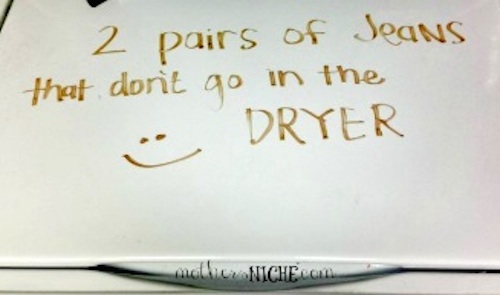 2 pairs of Jeans
that don't go in the
DRYER
mothersNICHE.com